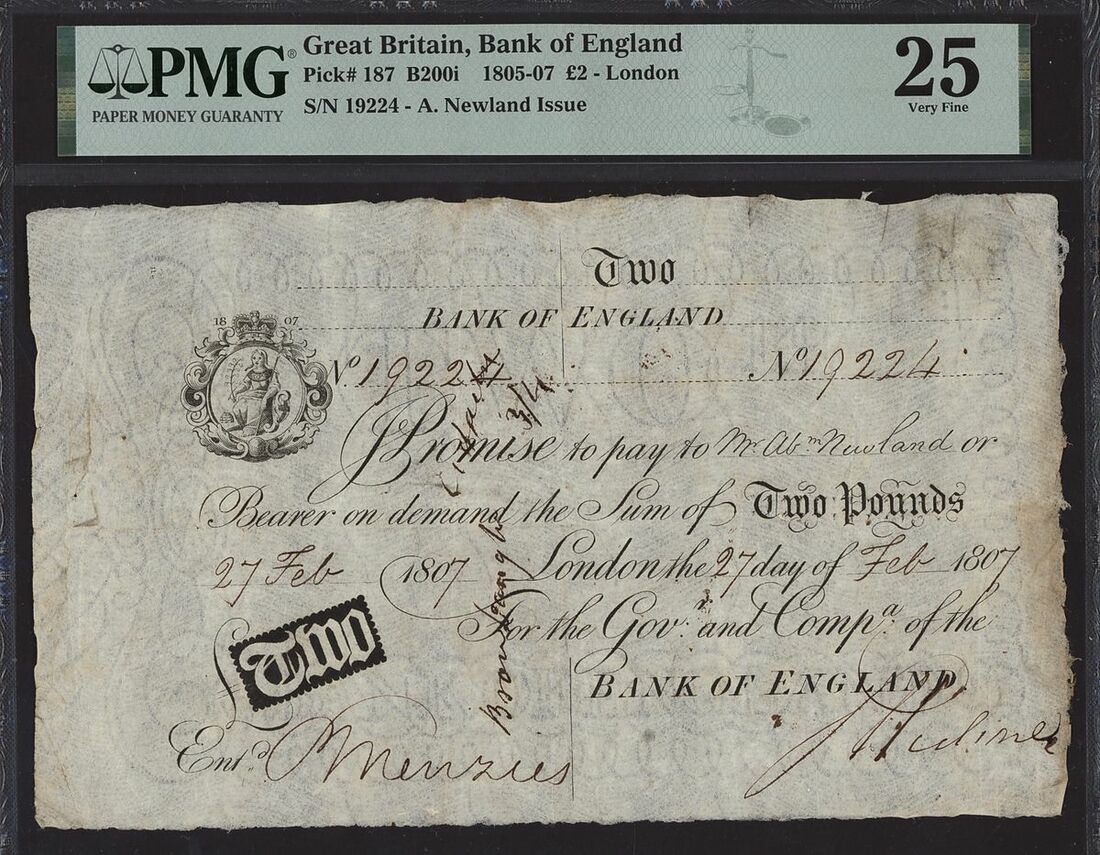 PMG®
PAPER MONEY GUARANTY
Great Britain, Bank of England
Pick# 187 B200i 1805-07 £2 - London
S/N 19224 - A. Newland Issue
25
Very Fine
Two
BANK OF ENGLAND
18 07
Nº 19224 Nº 19224
I Promise to pay to Mr. Abm. Newland or
Bearer on demand the Sum of Two Pounds
27 Feb 1807 London the 27 day of Feb 1807
For the Govr. and Compa. of the
£ Two
BANK OF ENGLAND.
Entd. Menzies